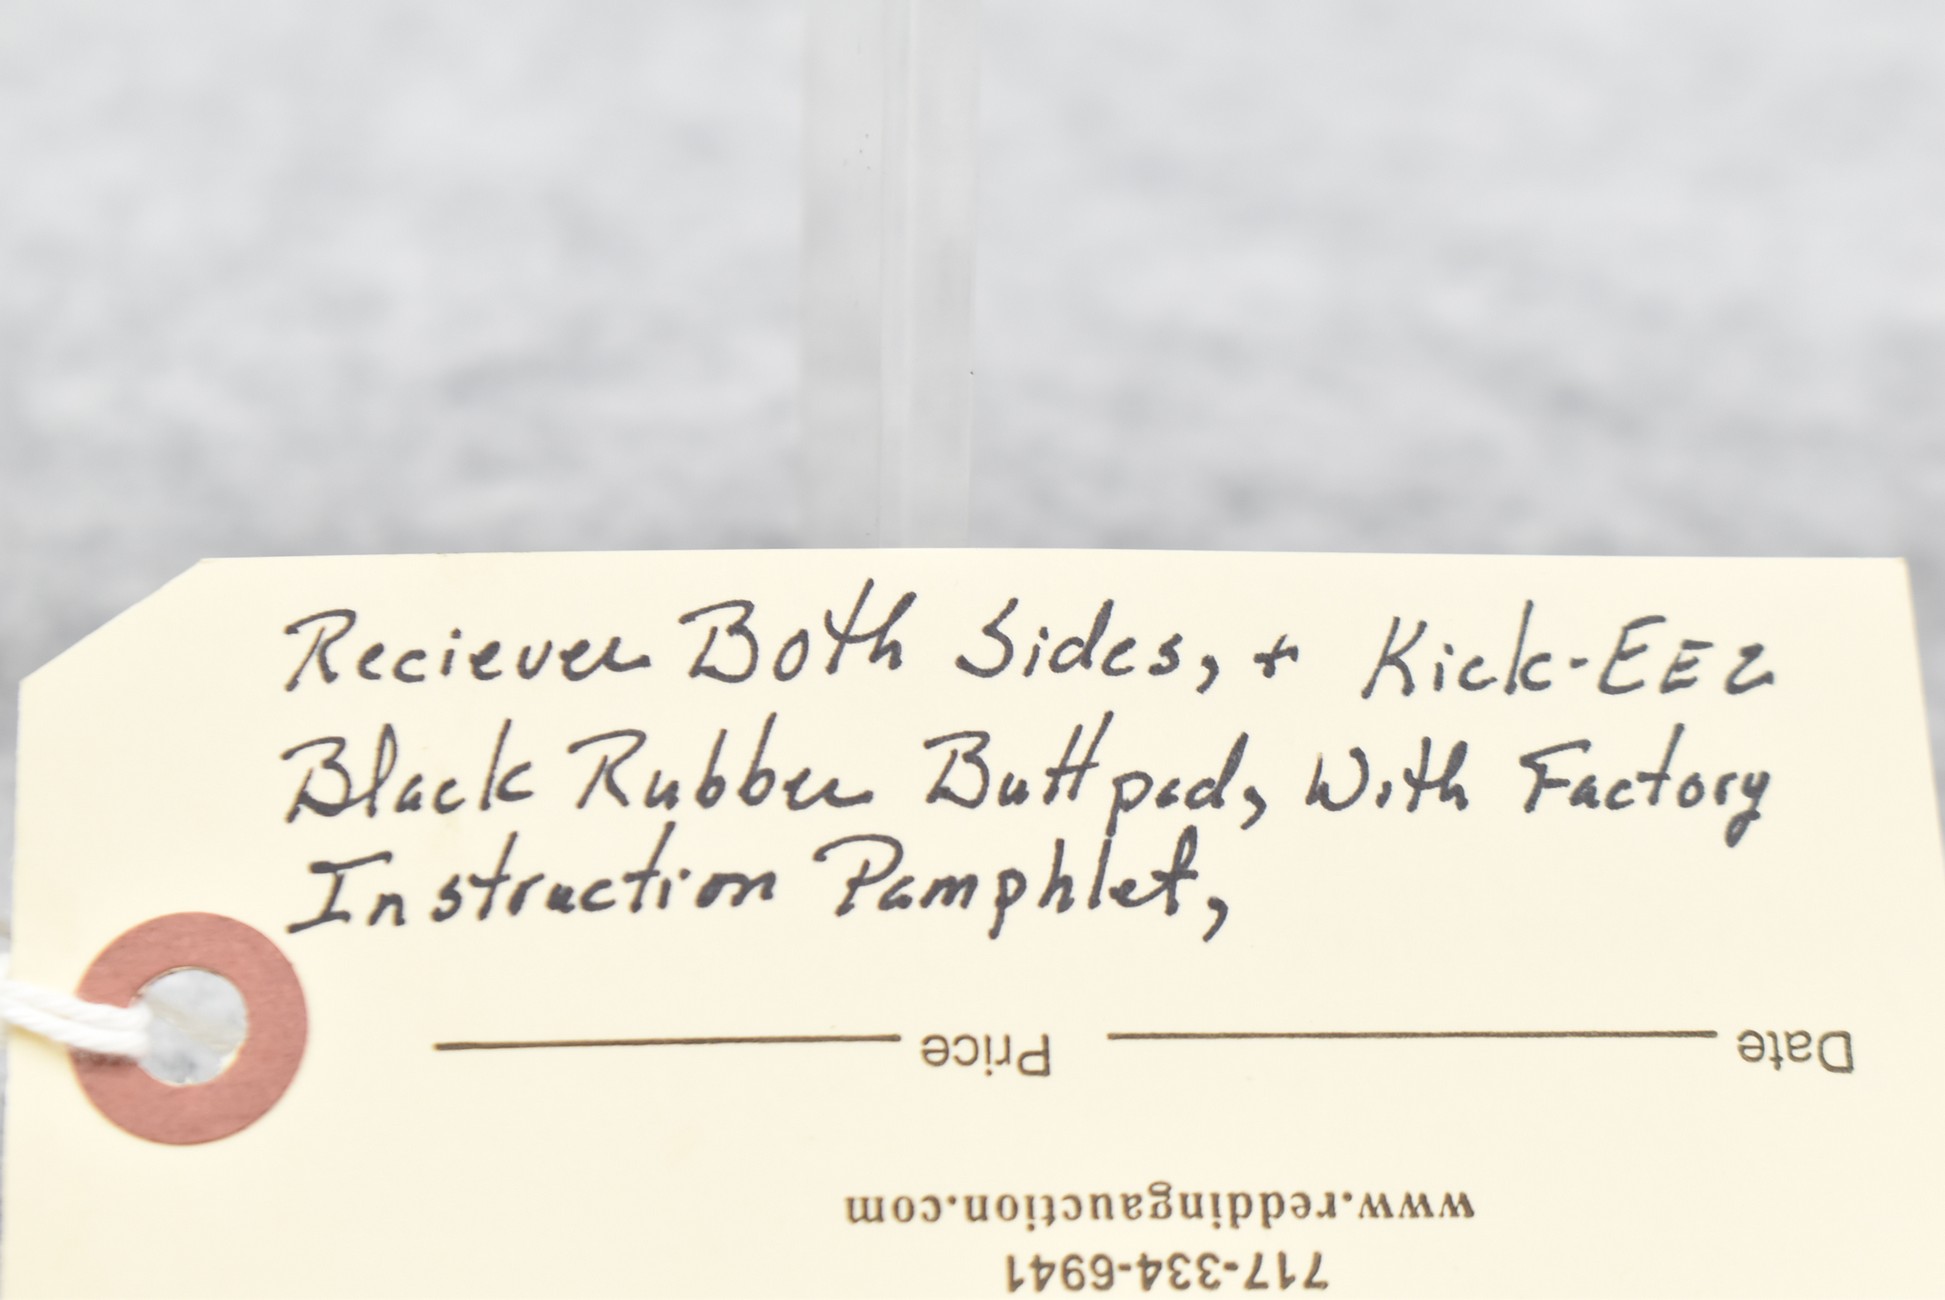 Reciever Both Sides, + Kick-EEZ
Black Rubber Buttpad, With Factory
Instruction Pamphlet,
Date
Price
www.reddingauction.com
717-334-6941